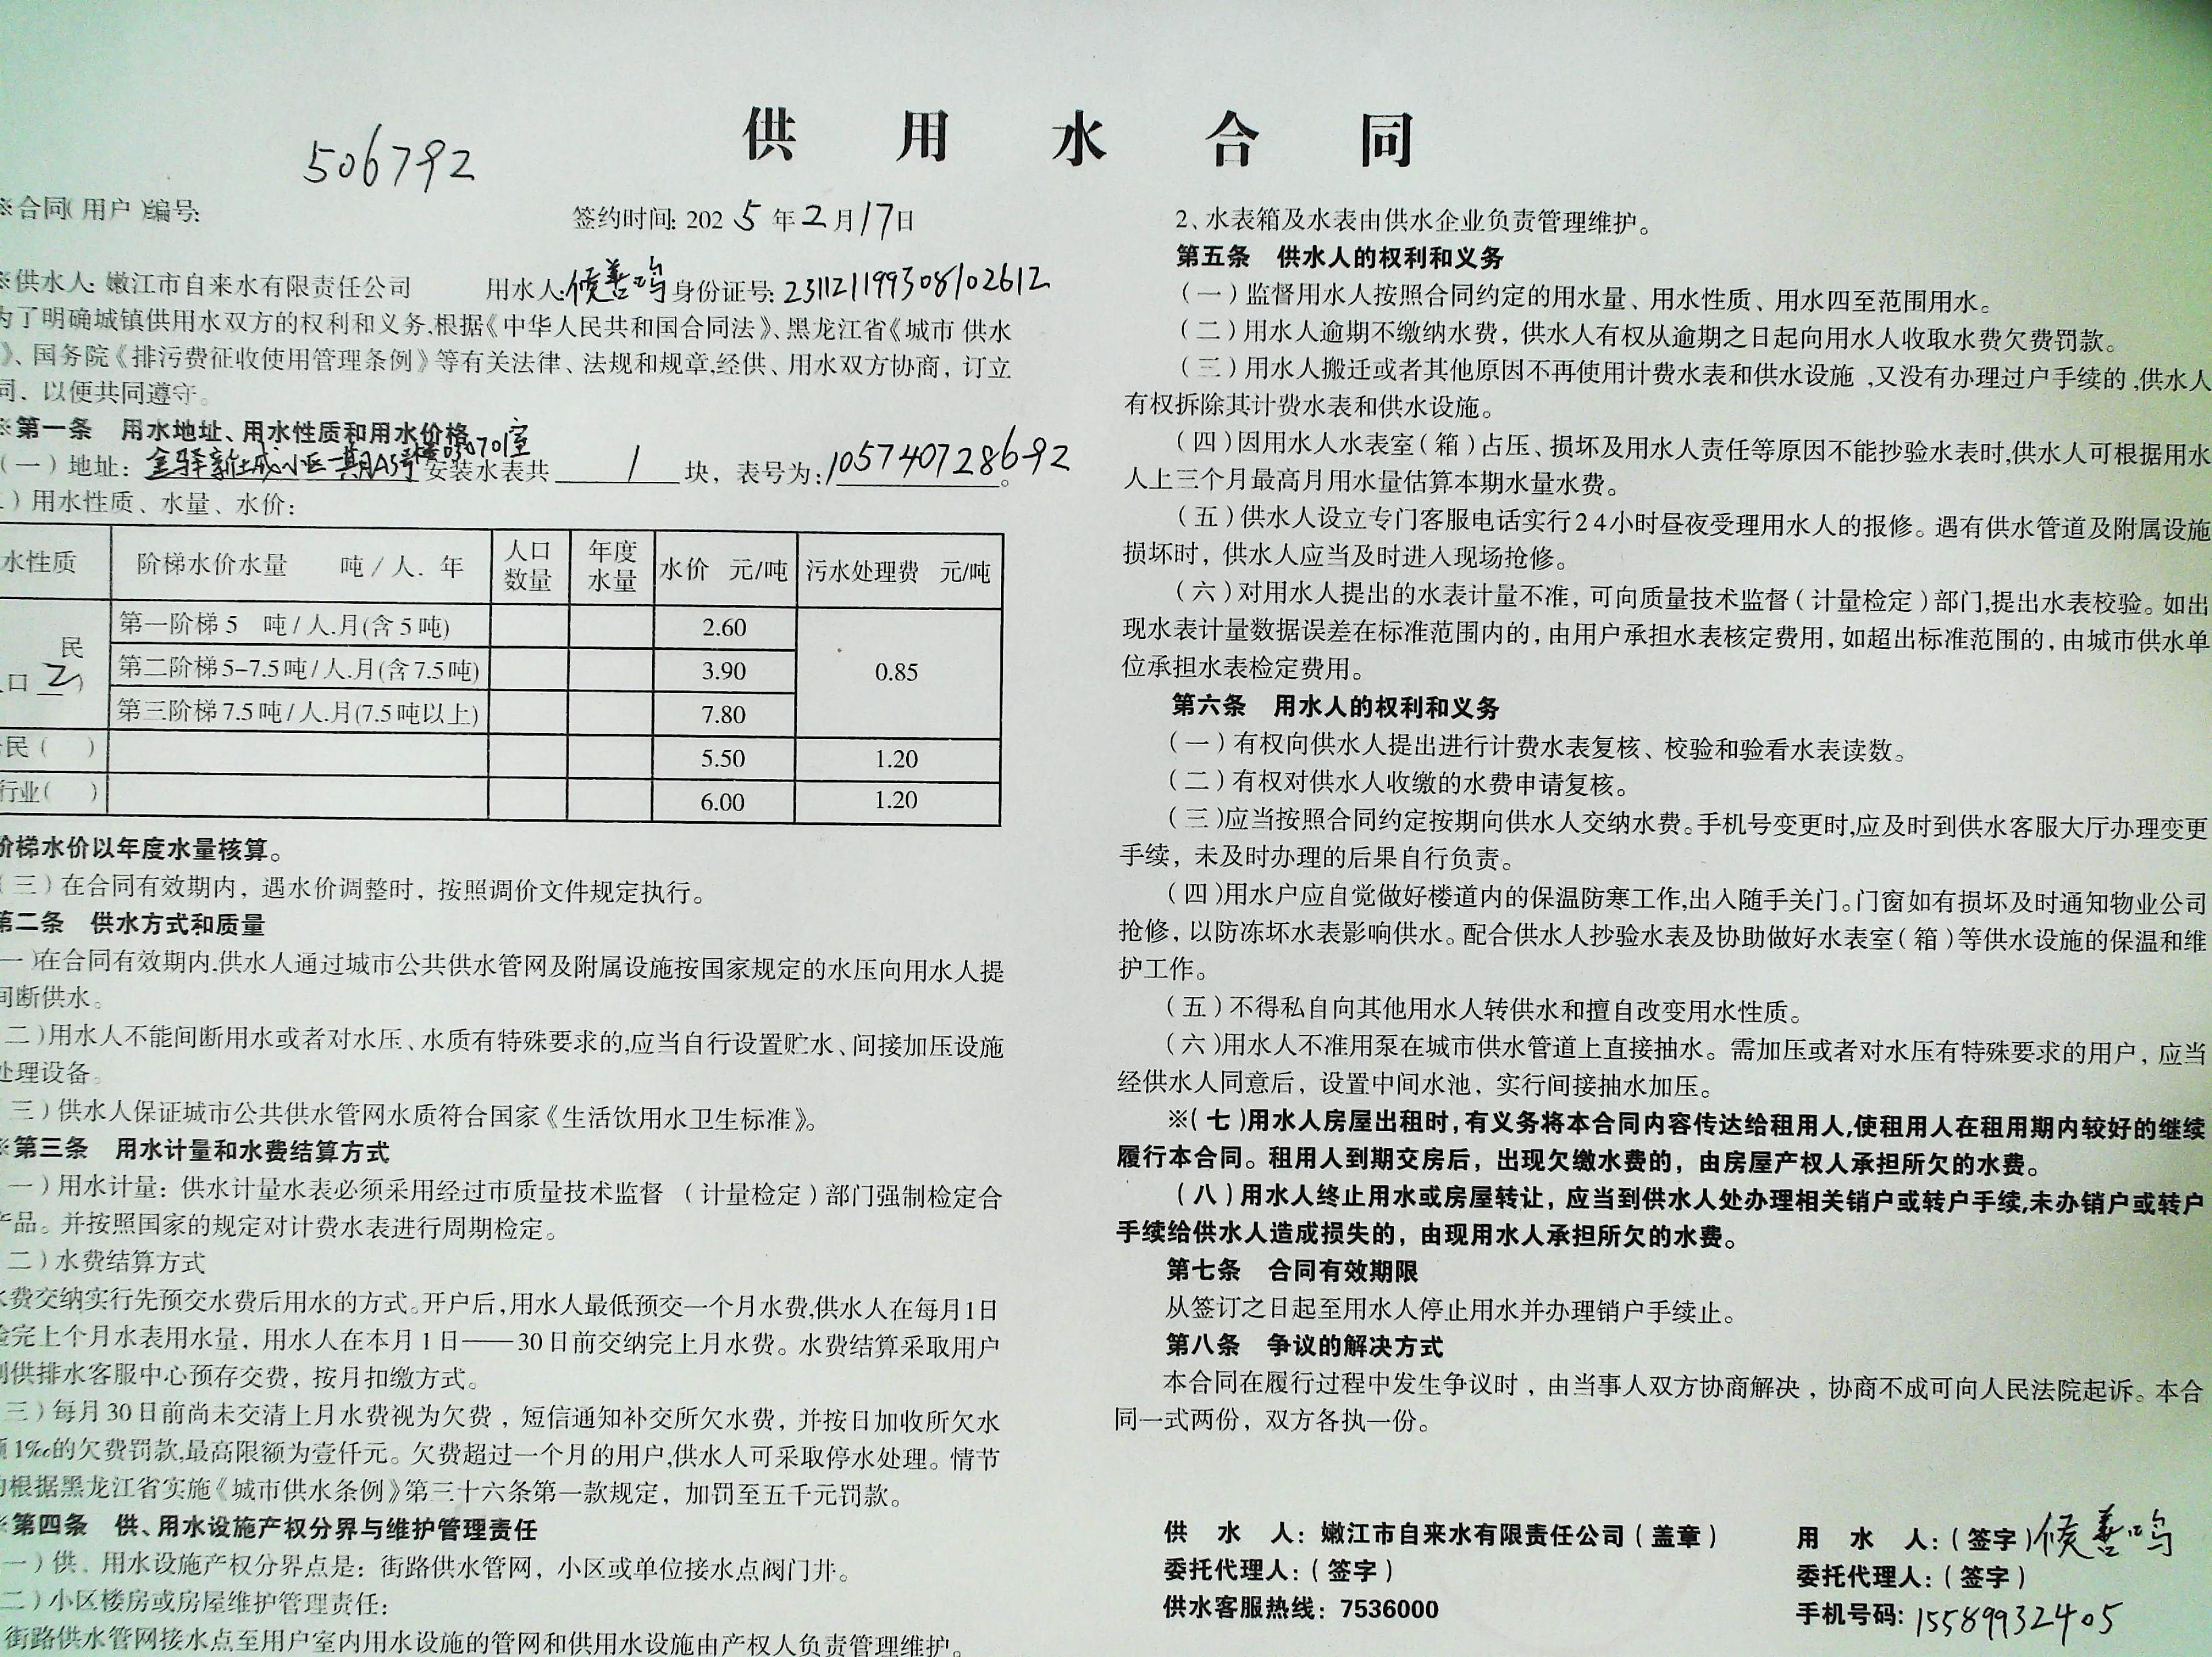 供用水合同
506792
※合同(用户)编号:
签约时间: 2025年2月17日
※供水人: 嫩江市自来水有限责任公司 用水人:候善鸣 身份证号: 231121199308102612
为了明确城镇供用水双方的权利和义务,根据《中华人民共和国合同法》、黑龙江省《城市 供水
》、国务院《排污费征收使用管理条例》等有关法律、法规和规章,经供、用水双方协商，订立
同，以便共同遵守。
※第一条 用水地址、用水性质和用水价格
(一)地址: 金驿新城小区一期A5号楼030701室 安装水表共 1 块，表号为: 105740728692。
)用水性质、水量、水价:
水性质 阶梯水价水量 吨/人.年 人口数量 年度水量 水价 元/吨 污水处理费 元/吨
民
口 2 )
第一阶梯 5 吨/人.月(含5吨) 2.60
第二阶梯5-7.5吨/人.月(含7.5吨) 3.90 0.85
第三阶梯7.5吨/人.月(7.5吨以上) 7.80
民( ) 5.50 1.20
行业( ) 6.00 1.20
阶梯水价以年度水量核算。
(三)在合同有效期内，遇水价调整时，按照调价文件规定执行。
第二条 供水方式和质量
一)在合同有效期内,供水人通过城市公共供水管网及附属设施按国家规定的水压向用水人提
间断供水。
二)用水人不能间断用水或者对水压、水质有特殊要求的,应当自行设置贮水、间接加压设施
处理设备。
三)供水人保证城市公共供水管网水质符合国家《生活饮用水卫生标准》。
※第三条 用水计量和水费结算方式
一)用水计量: 供水计量水表必须采用经过市质量技术监督 (计量检定)部门强制检定合
产品。并按照国家的规定对计费水表进行周期检定。
二)水费结算方式
水费交纳实行先预交水费后用水的方式。开户后,用水人最低预交一个月水费,供水人在每月1日
验完上个月水表用水量，用水人在本月1日——30日前交纳完上月水费。水费结算采取用户
到供排水客服中心预存交费，按月扣缴方式。
三)每月30日前尚未交清上月水费视为欠费，短信通知补交所欠水费，并按日加收所欠水
1‰的欠费罚款,最高限额为壹仟元。欠费超过一个月的用户,供水人可采取停水处理。情节
的根据黑龙江省实施《城市供水条例》第三十六条第一款规定，加罚至五千元罚款。
※第四条 供、用水设施产权分界与维护管理责任
一)供、用水设施产权分界点是: 街路供水管网，小区或单位接水点阀门井。
二)小区楼房或房屋维护管理责任:
街路供水管网接水点至用户室内用水设施的管网和供用水设施由产权人负责管理维护。
2、水表箱及水表由供水企业负责管理维护。
第五条 供水人的权利和义务
(一)监督用水人按照合同约定的用水量、用水性质、用水四至范围用水。
(二)用水人逾期不缴纳水费，供水人有权从逾期之日起向用水人收取水费欠费罚款。
(三)用水人搬迁或者其他原因不再使用计费水表和供水设施 ,又没有办理过户手续的 ,供水人
有权拆除其计费水表和供水设施。
(四)因用水人水表室(箱)占压、损坏及用水人责任等原因不能抄验水表时,供水人可根据用水
人上三个月最高月用水量估算本期水量水费。
(五)供水人设立专门客服电话实行24小时昼夜受理用水人的报修。遇有供水管道及附属设施
损坏时，供水人应当及时进入现场抢修。
(六)对用水人提出的水表计量不准，可向质量技术监督(计量检定)部门,提出水表校验。如出
现水表计量数据误差在标准范围内的，由用户承担水表核定费用，如超出标准范围的，由城市供水单
位承担水表检定费用。
第六条 用水人的权利和义务
(一)有权向供水人提出进行计费水表复核、校验和验看水表读数。
(二)有权对供水人收缴的水费申请复核。
(三)应当按照合同约定按期向供水人交纳水费。手机号变更时,应及时到供水客服大厅办理变更
手续，未及时办理的后果自行负责。
(四)用水户应自觉做好楼道内的保温防寒工作,出入随手关门。门窗如有损坏及时通知物业公司
抢修，以防冻坏水表影响供水。配合供水人抄验水表及协助做好水表室(箱)等供水设施的保温和维
护工作。
(五)不得私自向其他用水人转供水和擅自改变用水性质。
(六)用水人不准用泵在城市供水管道上直接抽水。需加压或者对水压有特殊要求的用户，应当
经供水人同意后，设置中间水池，实行间接抽水加压。
※(七)用水人房屋出租时，有义务将本合同内容传达给租用人,使租用人在租用期内较好的继续
履行本合同。租用人到期交房后，出现欠缴水费的，由房屋产权人承担所欠的水费。
(八)用水人终止用水或房屋转让，应当到供水人处办理相关销户或转户手续,未办销户或转户
手续给供水人造成损失的，由现用水人承担所欠的水费。
第七条 合同有效期限
从签订之日起至用水人停止用水并办理销户手续止。
第八条 争议的解决方式
本合同在履行过程中发生争议时，由当事人双方协商解决，协商不成可向人民法院起诉。本合
同一式两份，双方各执一份。
供 水 人: 嫩江市自来水有限责任公司(盖章)
委托代理人:(签字)
供水客服热线: 7536000
用 水 人:(签字)候善鸣
委托代理人:(签字)
手机号码: 15589932405